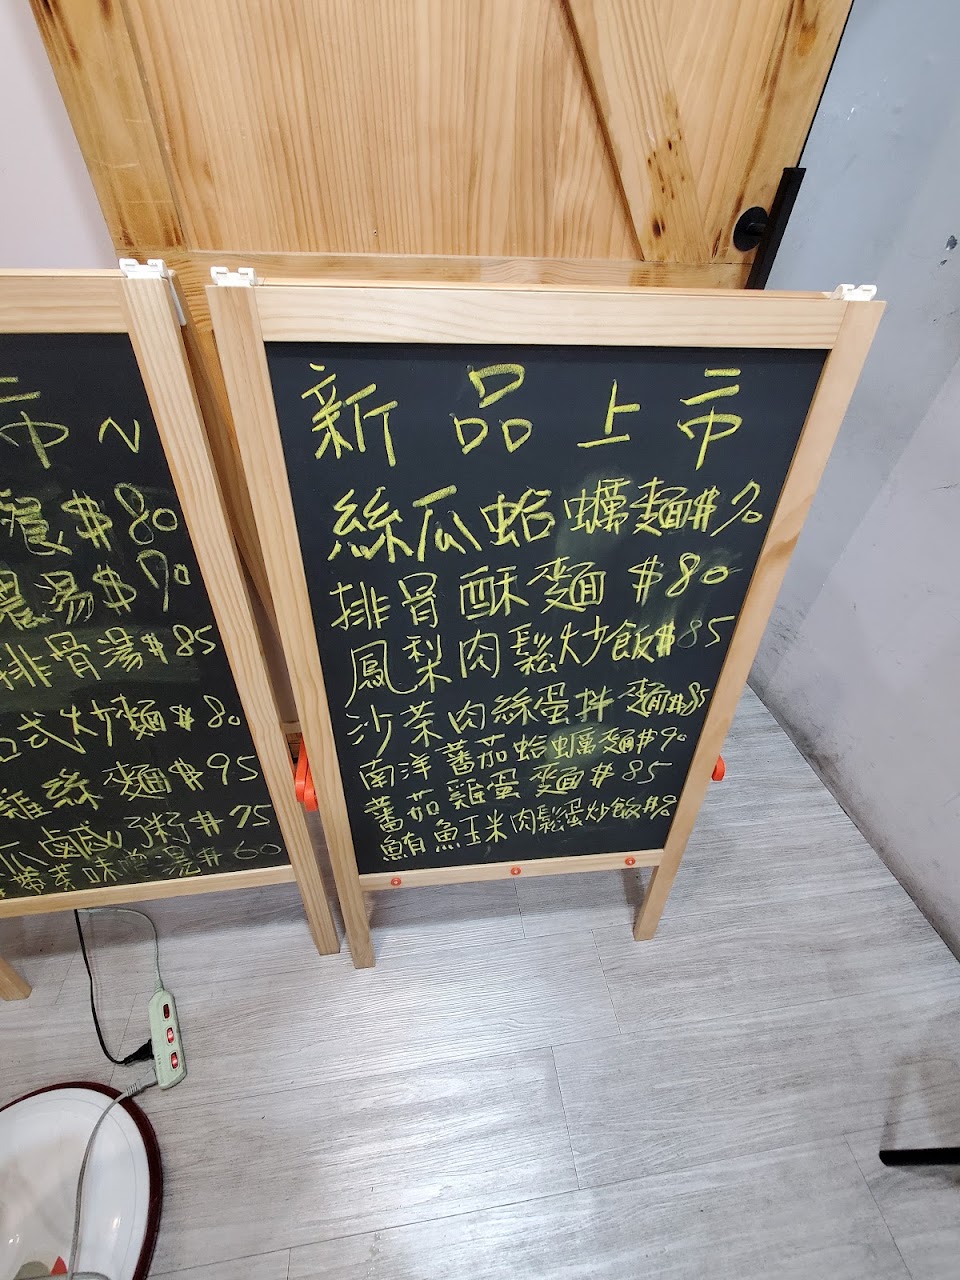 市~
餐$80
濃湯$70
排骨湯$85
式炒麵$80
雞絲麵$95
瓜鹹粥$75
味噌湯$60
新品上市
絲瓜蛤蠣麵$70
排骨酥麵$80
鳳梨肉鬆炒飯$85
沙茶肉絲蛋拌麵$85
南洋蕃茄蛤蠣麵$90
蕃茄雞蛋麵$85
鮪魚玉米肉鬆蛋炒飯